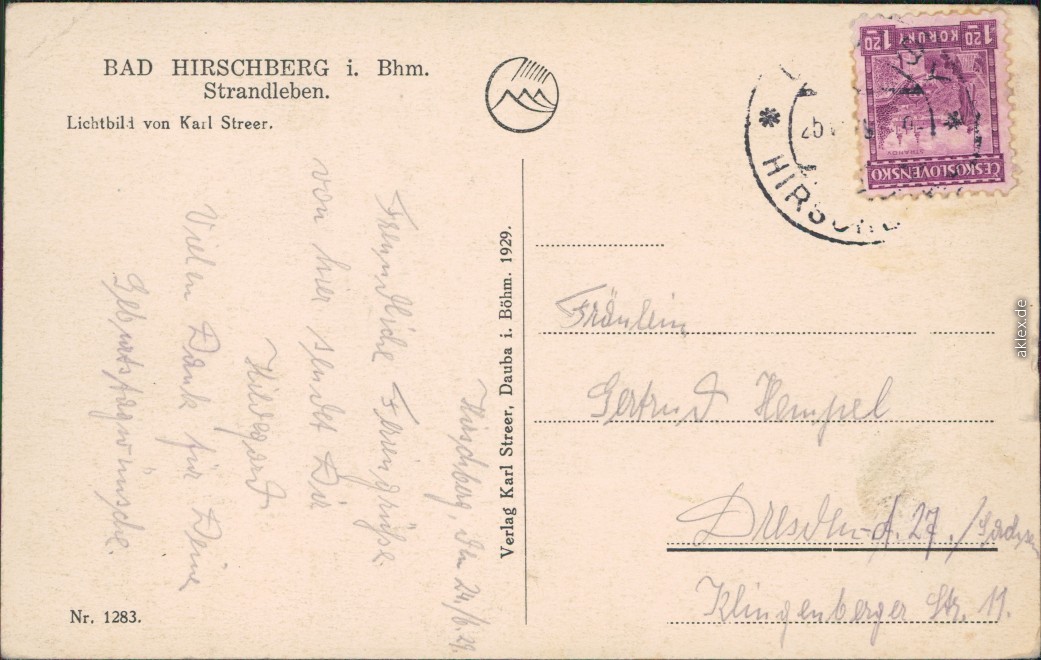 BAD HIRSCHBERG i. Bhm.
Strandleben.
Lichtbild von Karl Streer.
Hirschberg, den 24./6.29.
Freundliche Feriengrüße
von hier sendet Dir
Hildegard.
Vielen Dank für Deine
Geburtstagwünsche.
Nr. 1283.
Verlag Karl Streer, Dauba i. Böhm. 1929.
1.20 KORUNY 1.20
STRAHOV
ČESKOSLOVENSKO
* HIRSCHB
*
Fräulein
Gertrud Hempel
Dresden-A. 27. /Sachsen
Klingenberger Str. 11.
aklex.de